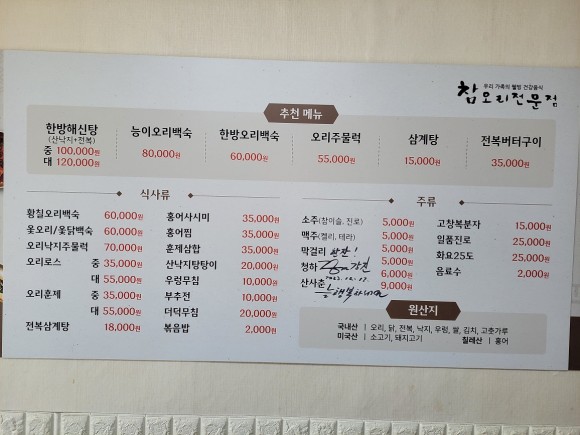 우리 가족의 웰빙 건강음식
참오리전문점
추천 메뉴
한방해신탕 (산낙지+전복) 중 100,000원 대 120,000원
능이오리백숙 80,000원
한방오리백숙 60,000원
오리주물럭 55,000원
삼계탕 15,000원
전복버터구이 35,000원
식사류
황칠오리백숙 60,000원
옻오리/옻닭백숙 60,000원
오리낙지주물럭 70,000원
오리로스 중 35,000원
대 55,000원
오리훈제 중 35,000원
대 55,000원
전복삼계탕 18,000원
홍어사시미 35,000원
홍어찜 35,000원
훈제삼합 35,000원
산낙지탕탕이 20,000원
우렁무침 10,000원
부추전 10,000원
더덕무침 20,000원
볶음밥 2,000원
주류
소주(참이슬, 진로) 5,000원
맥주(켈리, 테라) 5,000원
막걸리 5,000원
청하 5,000원
6,000원
산사춘 9,000원
행복하세요
고창복분자 15,000원
일품진로 25,000원
화요25도 25,000원
음료수 2,000원
원산지
국내산 | 오리, 닭, 전복, 낙지, 우렁, 쌀, 김치, 고춧가루
미국산 | 소고기, 돼지고기 칠레산 | 홍어